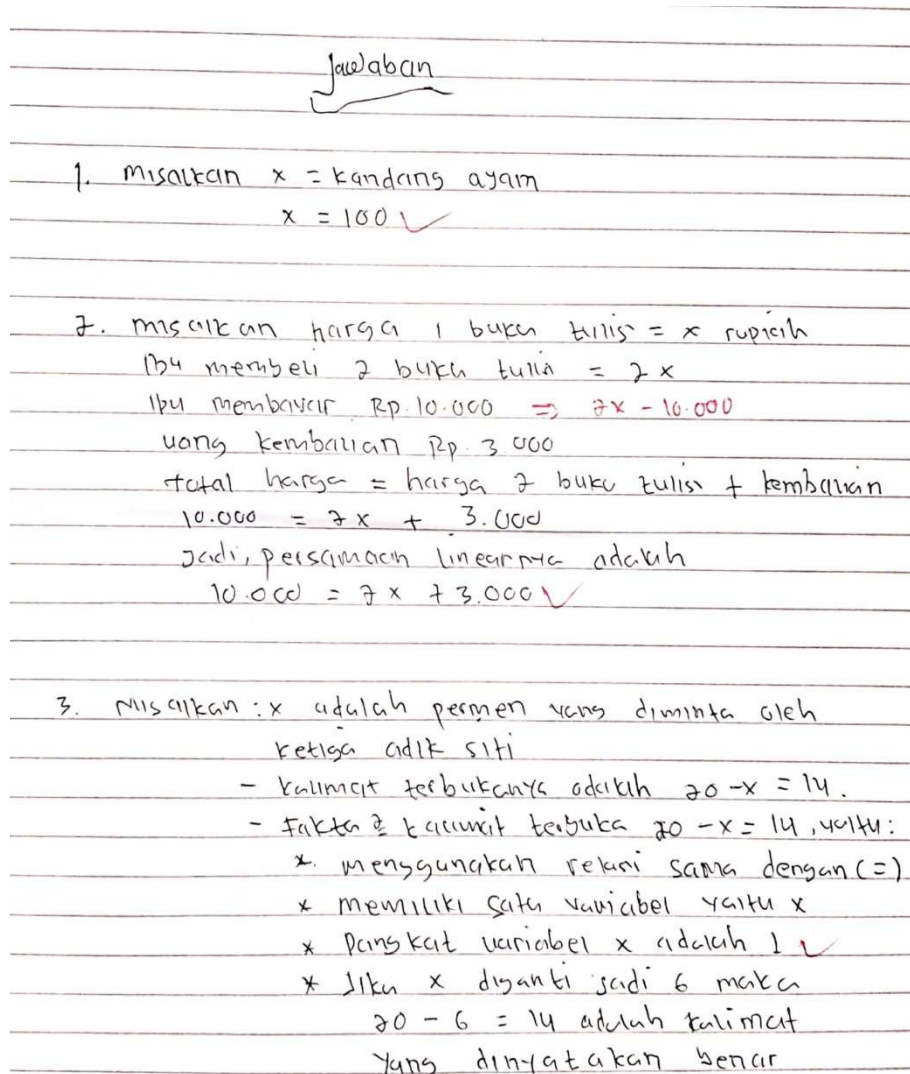 Jawaban
1. Misalkan x = kandang ayam
x = 100 ✓
2. misalkan harga 1 buku tulis = x rupiah
Ibu membeli 2 buku tulis = 2x
Ibu membayar Rp. 10.000 ⇒ 2x - 10.000
uang kembalian Rp. 3.000
total harga = harga 2 buku tulis + kembalian
10.000 = 2x + 3.000
Jadi, persamaan linearnya adalah
10.000 = 2x + 3.000 ✓
3. Misalkan : x adalah permen yang diminta oleh
ketiga adik siti
- kalimat terbukanya adalah 20 - x = 14.
- Fakta2 kalimat terbuka 20 - x = 14, yaitu :
* menggunakan relasi sama dengan (=)
* memiliki satu variabel yaitu x
* Pangkat variabel x adalah 1 ✓
* Jika x diganti jadi 6 maka
20 - 6 = 14 adalah kalimat
yang dinyatakan benar